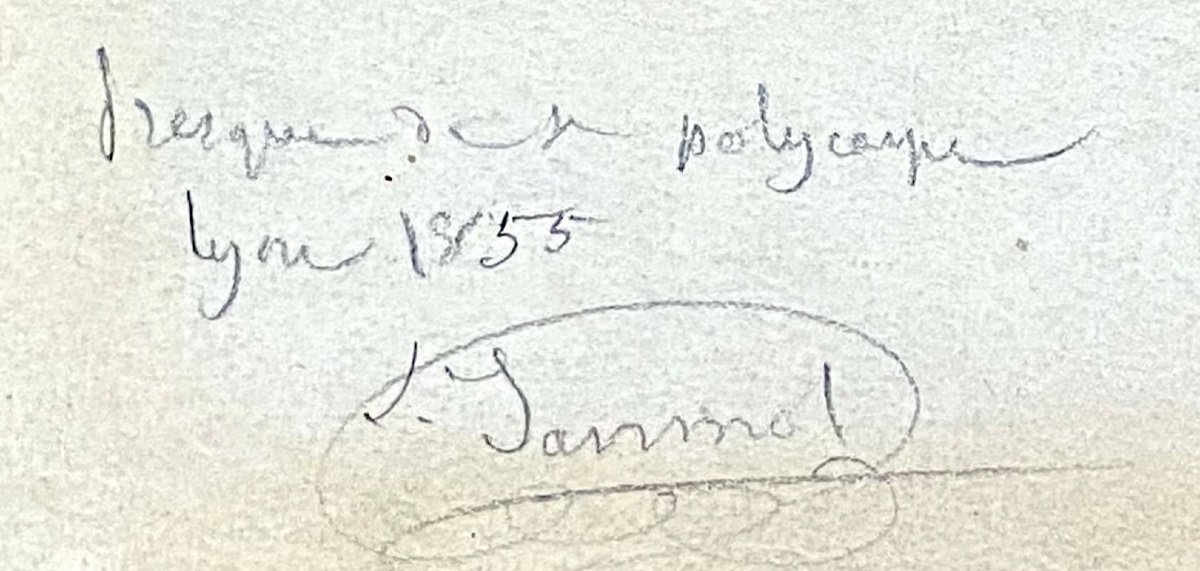 fresque de St polycarpe
Lyon 1855
L. Janmot